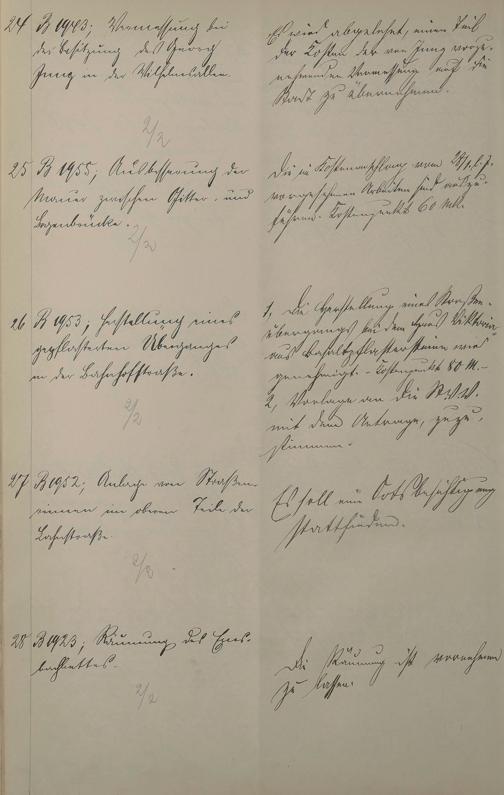 24 B 1943; Vermessung bei
der Besitzung des Georg
Jung in der Wilhelmsallee.
Es wird abgelehnt, einen Teil
der Kosten der von Jung vorzu-
nehmenden Vermessung auf die
Stadt zu übernehmen.
2/2
25 B 1955; Ausbesserung der
Mauer zwischen Gitter- und
Bogenbrücke.
Die im Kostenanschlag vom 28/1. l. J.
vorgesehenen Arbeiten sind auszu-
führen. Kostenpunkt 60 Mk.
2/2
26 B 1953; Herstellung eines
gepflasterten Überganges
in der Bahnhofstraße.
1, Die Herstellung eines Straßen-
übergangs bei dem Haus Viktoria
aus Basaltpflastersteinen wird
genehmigt. - Kostenpunkt 80 M. -
2, Vorlage an die St.V.V.
mit dem Antrage, zuzu-
stimmen.
2/2
27 B 1952; Anlage von Straßen-
rinnen im oberen Teile der
Lahnstraße.
Es soll eine Ortsbesichtigung
stattfinden.
2/2
28 B 1923; Räumung des
bachbettes.
Die Räumung ist vornehmen
zu lassen.
2/2